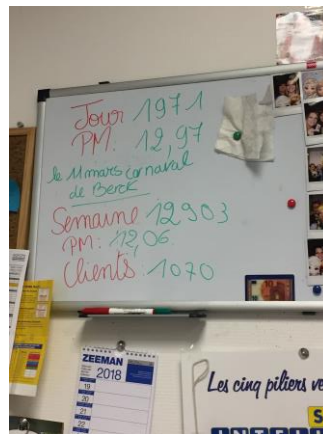 Jour 1971
PM. 12,97
le 11 mars Carnaval
de Berck
Semaine 12903
PM: 12,06
Clients: 1070
ZEEMAN
2018
19
20
21
22
Les cinq piliers